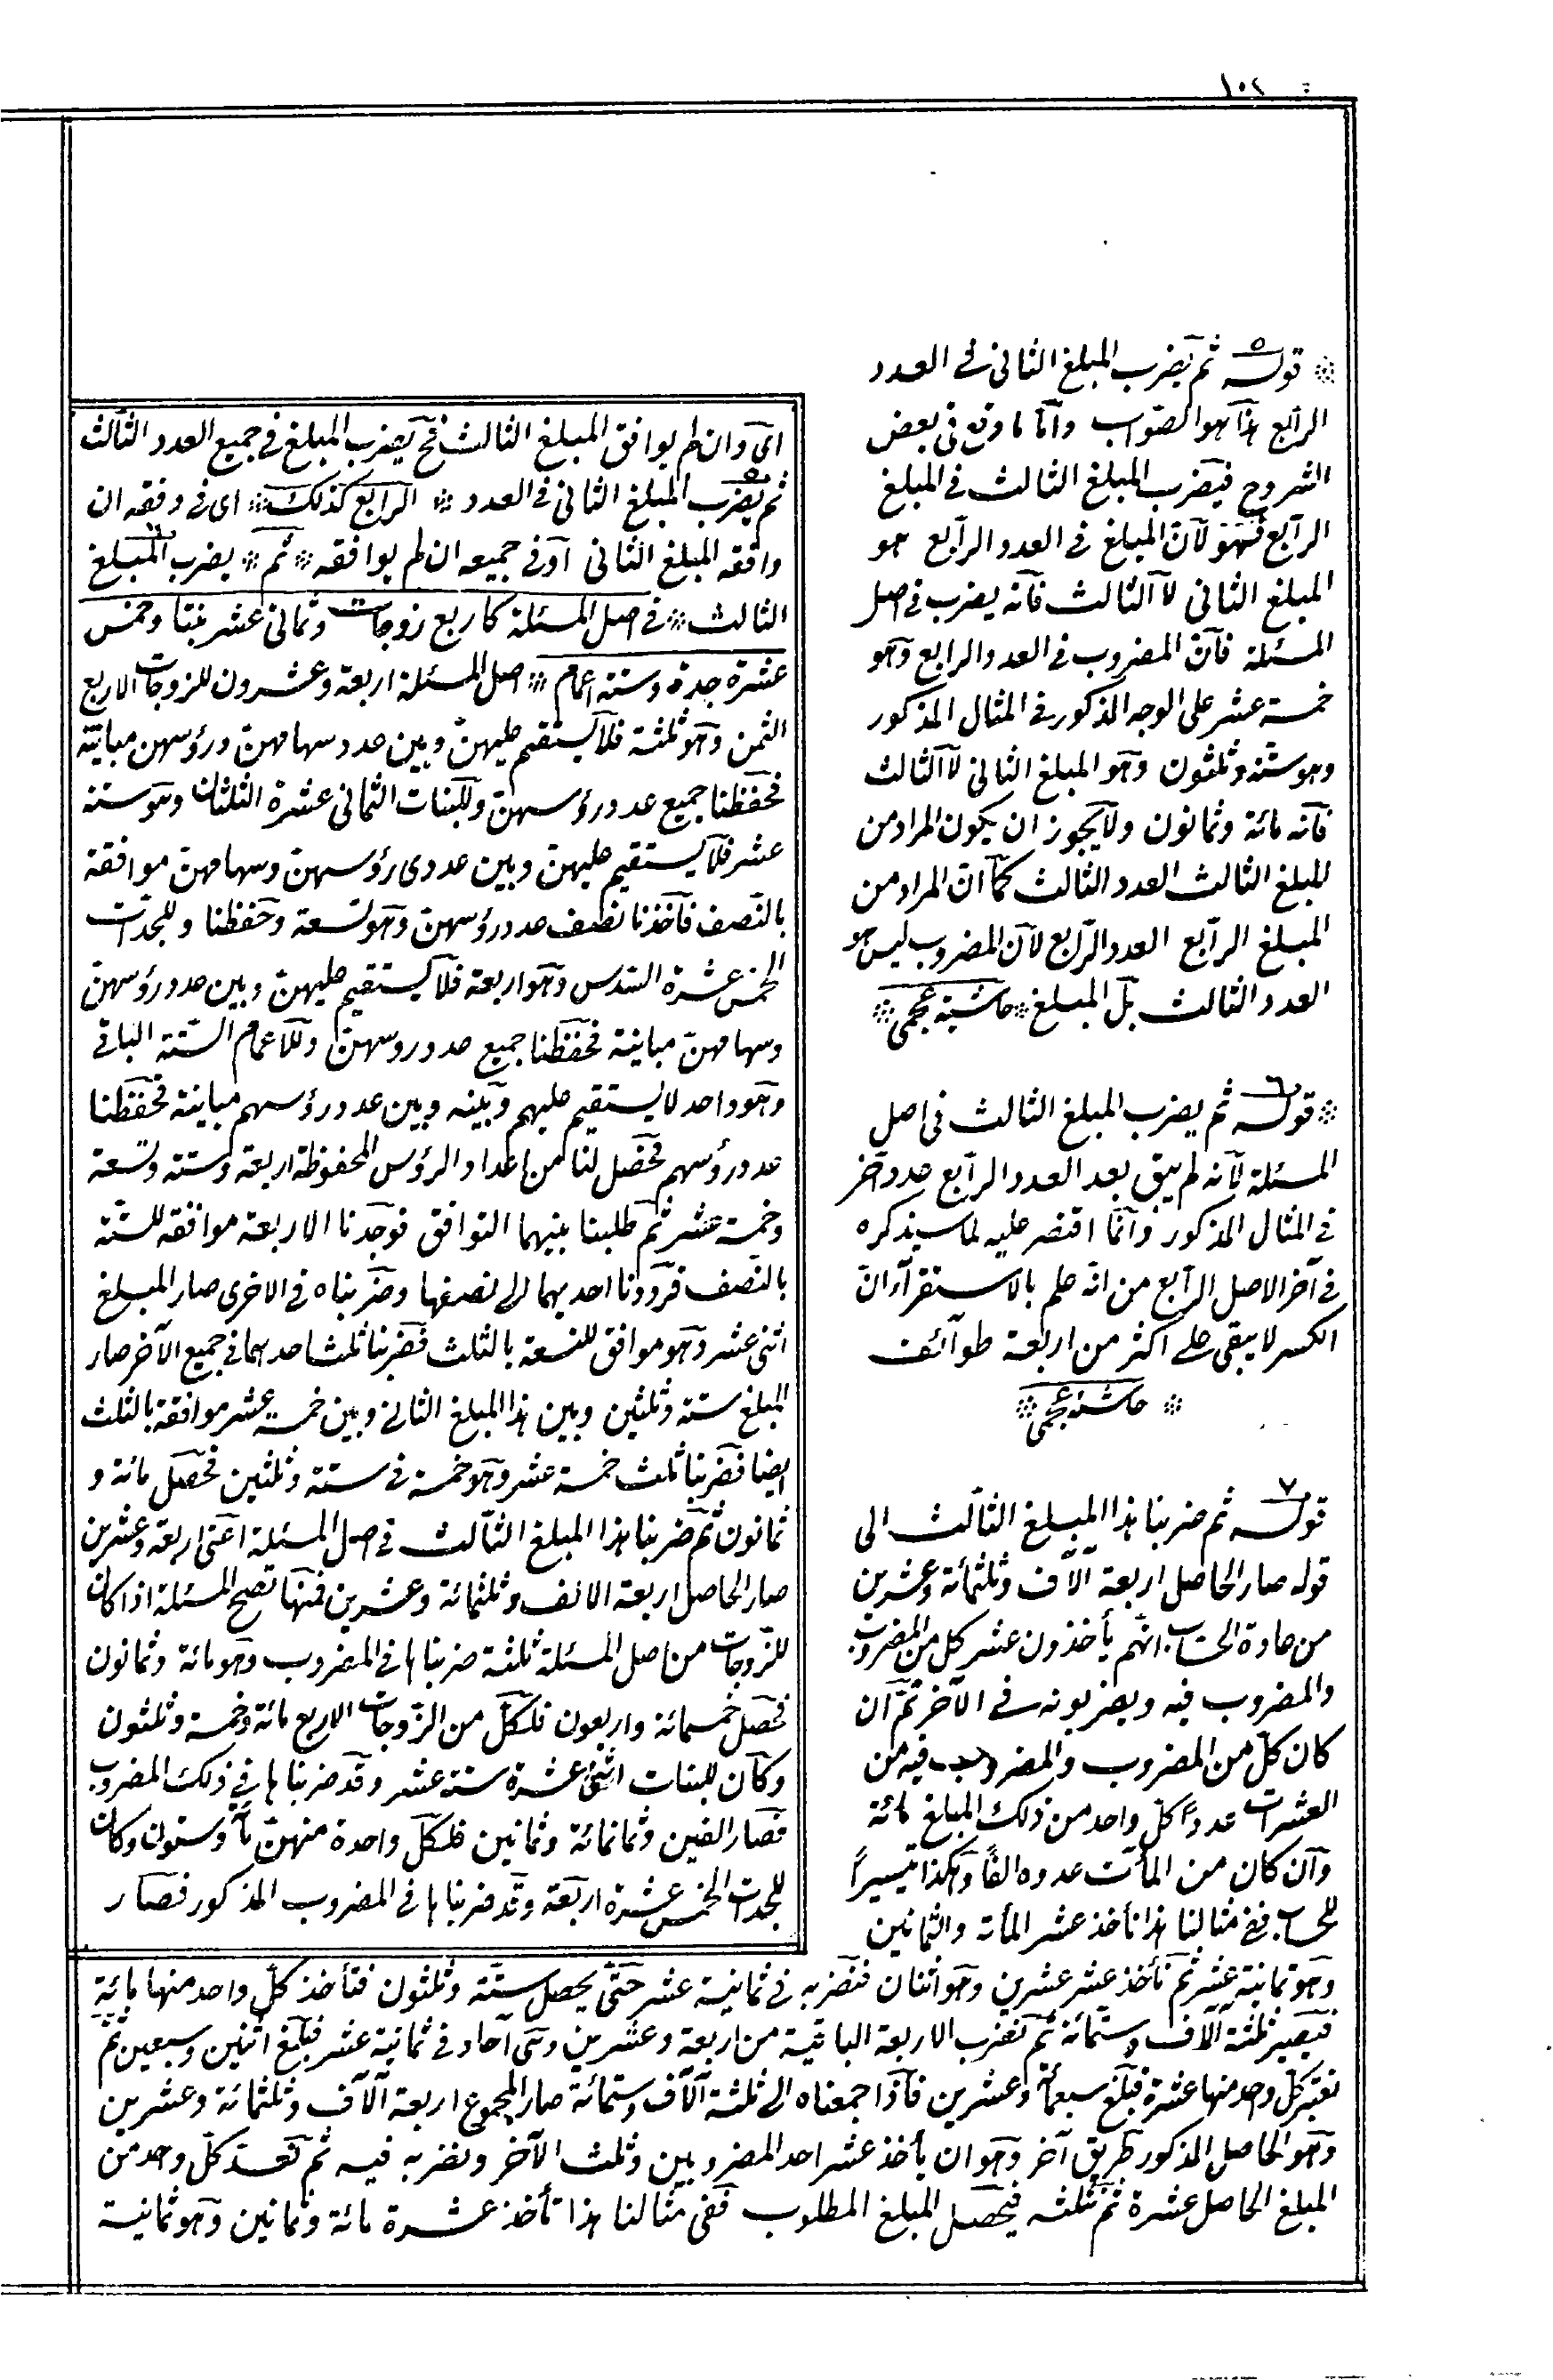 ١٠٢
اى وان لم يوافق المبلغ الثالث فح يضرب المبلغ فى جميع العدد الثالث
ثم يضرب المبلغ الثانى فى العدد ※ الرابع كذلك ※ اى فى وفقه ان
وافقه المبلغ الثانى او فى جميعه ان لم يوافقه ※ ثم ※ يضرب المبلغ
الثالث ※ فى اصل المسئلة كاربع زوجات وثمانى عشر بنتا وخمس
عشرة جدة وستة اعمام ※ اصل المسئلة اربعة وعشرون للزوجات الاربع
الثمن وهو ثلثة فلا يستقيم عليهن وبين عدد سهامهن ورؤسهن مباينة
فحفظنا جميع عدد رؤسهن وللبنات الثمانى عشرة الثلثان وهو ستة
عشر فلا يستقيم عليهن وبين عددى رؤسهن وسهامهن موافقة
بالنصف فاخذنا نصف عدد رؤسهن وهو تسعة وحفظنا وللجدات
الخمس عشرة السدس وهو اربعة فلا يستقيم عليهن وبين عدد رؤسهن
وسهامهن مباينة فحفظنا جميع عدد روسهن وللاعمام الستة الباقى
وهو واحد لا يستقيم عليهم وبينه وبين عدد رؤسهم مباينة فحفظنا
عدد رؤسهم فحصل لنا من اعداد الرؤس المحفوظة اربعة وستة وتسعة
وخمسة عشر ثم طلبنا بينهما التوافق فوجدنا الاربعة موافقة للستة
بالنصف فرددنا احديهما الى نصفها وضربناه فى الاخرى صار المبلغ
اثنى عشر وهو موافق للتسعة بالثلث فضربنا ثلث احدهما فى جميع الآخر صار
المبلغ ستة وثلثين وبين هذا المبلغ الثانى وبين خمسة عشر موافقة بالثلث
ايضا فضربنا ثلث خمسة عشر وهو خمسة فى ستة وثلثين فحصل مائة و
ثمانون ثم ضربنا هذا المبلغ الثالث فى اصل المسئلة اعنى اربعة وعشرين
صار الحاصل اربعة الالف وثلثمائة وعشرين فمنها تصح المسئلة اذا كان
للزوجات من اصل المسئلة ثلثة ضربناها فى المضروب وهو مائة وثمانون
فحصل خمسمائة واربعون فلكل من الزوجات الاربع مائة وخمسة وثلثون
وكان للبنات اثنى عشرة ستة عشر وقد ضربناها فى ذلك المضروب
فصار الفين وثمانمائة وثمانين فلكل واحدة منهن مأة وستون وكان
للجدات الخمس عشرة اربعة وقد ضربناها فى المضروب المذكور فصار
※ قوله ٥ ثم يضرب المبلغ الثانى فى العدد
الرابع هذا هو الصواب واما ما وقع فى بعض
الشروح فيضرب المبلغ الثالث فى المبلغ
الرابع فسهو لان المبلغ فى العدد الرابع هو
المبلغ الثانى لا الثالث فانه يضرب فى اصل
المسئلة فان المضروب فى العدد الرابع وهو
خمسة عشر على الوجه المذكور فى المثال المذكور
وهو ستة وثلثون وهو المبلغ الثانى لا الثالث
فانه مائة وثمانون ولا يجوز ان يكون المراد من
المبلغ الثالث العدد الثالث كما ان المراد من
المبلغ الرابع العدد الرابع لان المضروب ليس هو
العدد الثالث بل المبلغ ※ حاشية عجمى ※
※ قوله ٦ ثم يضرب المبلغ الثالث فى اصل
المسئلة لانه لم يبق بعد العدد الرابع عدد آخر
فى المثال المذكور وانما اقتصر عليه لما سيذكره
فى آخر الاصل الرابع من انه علم بالاستقرآء ان
الكسر لا يبقى على اكثر من اربعة طوآئف
※ حاشية عجمى ※
قوله ٧ ثم ضربنا هذا المبلغ الثالث الى
قوله صار الحاصل اربعة آلآف وثلثمائة وعشرين
من عادة الحساب انهم يأخذون عشر كل من المضروب
والمضروب فيه ويضربونه فى الآخر ثم ان
كان كل من المضروب والمضروب فيه من
العشرات عددا كل واحد من ذلك المبلغ مائة
وان كان من المأت عدوه الفًا وهكذا تيسيرًا
للحساب ففى مثالنا هذا نأخذ عشر المأة والثمانين
وهو ثمانية عشر ثم نأخذ عشر عشرين وهو اثنان فنضربه فى ثمانية عشر حتى يحصل ستة وثلثون فنأخذ كل واحد منها مائة
فيصير ثلثة آلآف وستمائة ثم نضرب الاربعة الباقية من اربعة وعشرين وهى آحاد فى ثمانية عشر فبلغ اثنين وسبعين ثم
نعتبر كل واحد منها عشرة فبلغ سبعمأة وعشرين فاذا جمعناه الى ثلثة آلآف وستمائة صار المجموع اربعة آلآف وثلثمائة وعشرين
وهو الحاصل المذكور طريق آخر وهو ان يأخذ عشر احد المضروبين وثلث الآخر ونضربه فيه ثم نعد كل واحد من
المبلغ الحاصل عشرة ثم نثلثه فيحصل المبلغ المطلوب ففى مثالنا هذا نأخذ عشرة مائة وثمانين وهو ثمانية